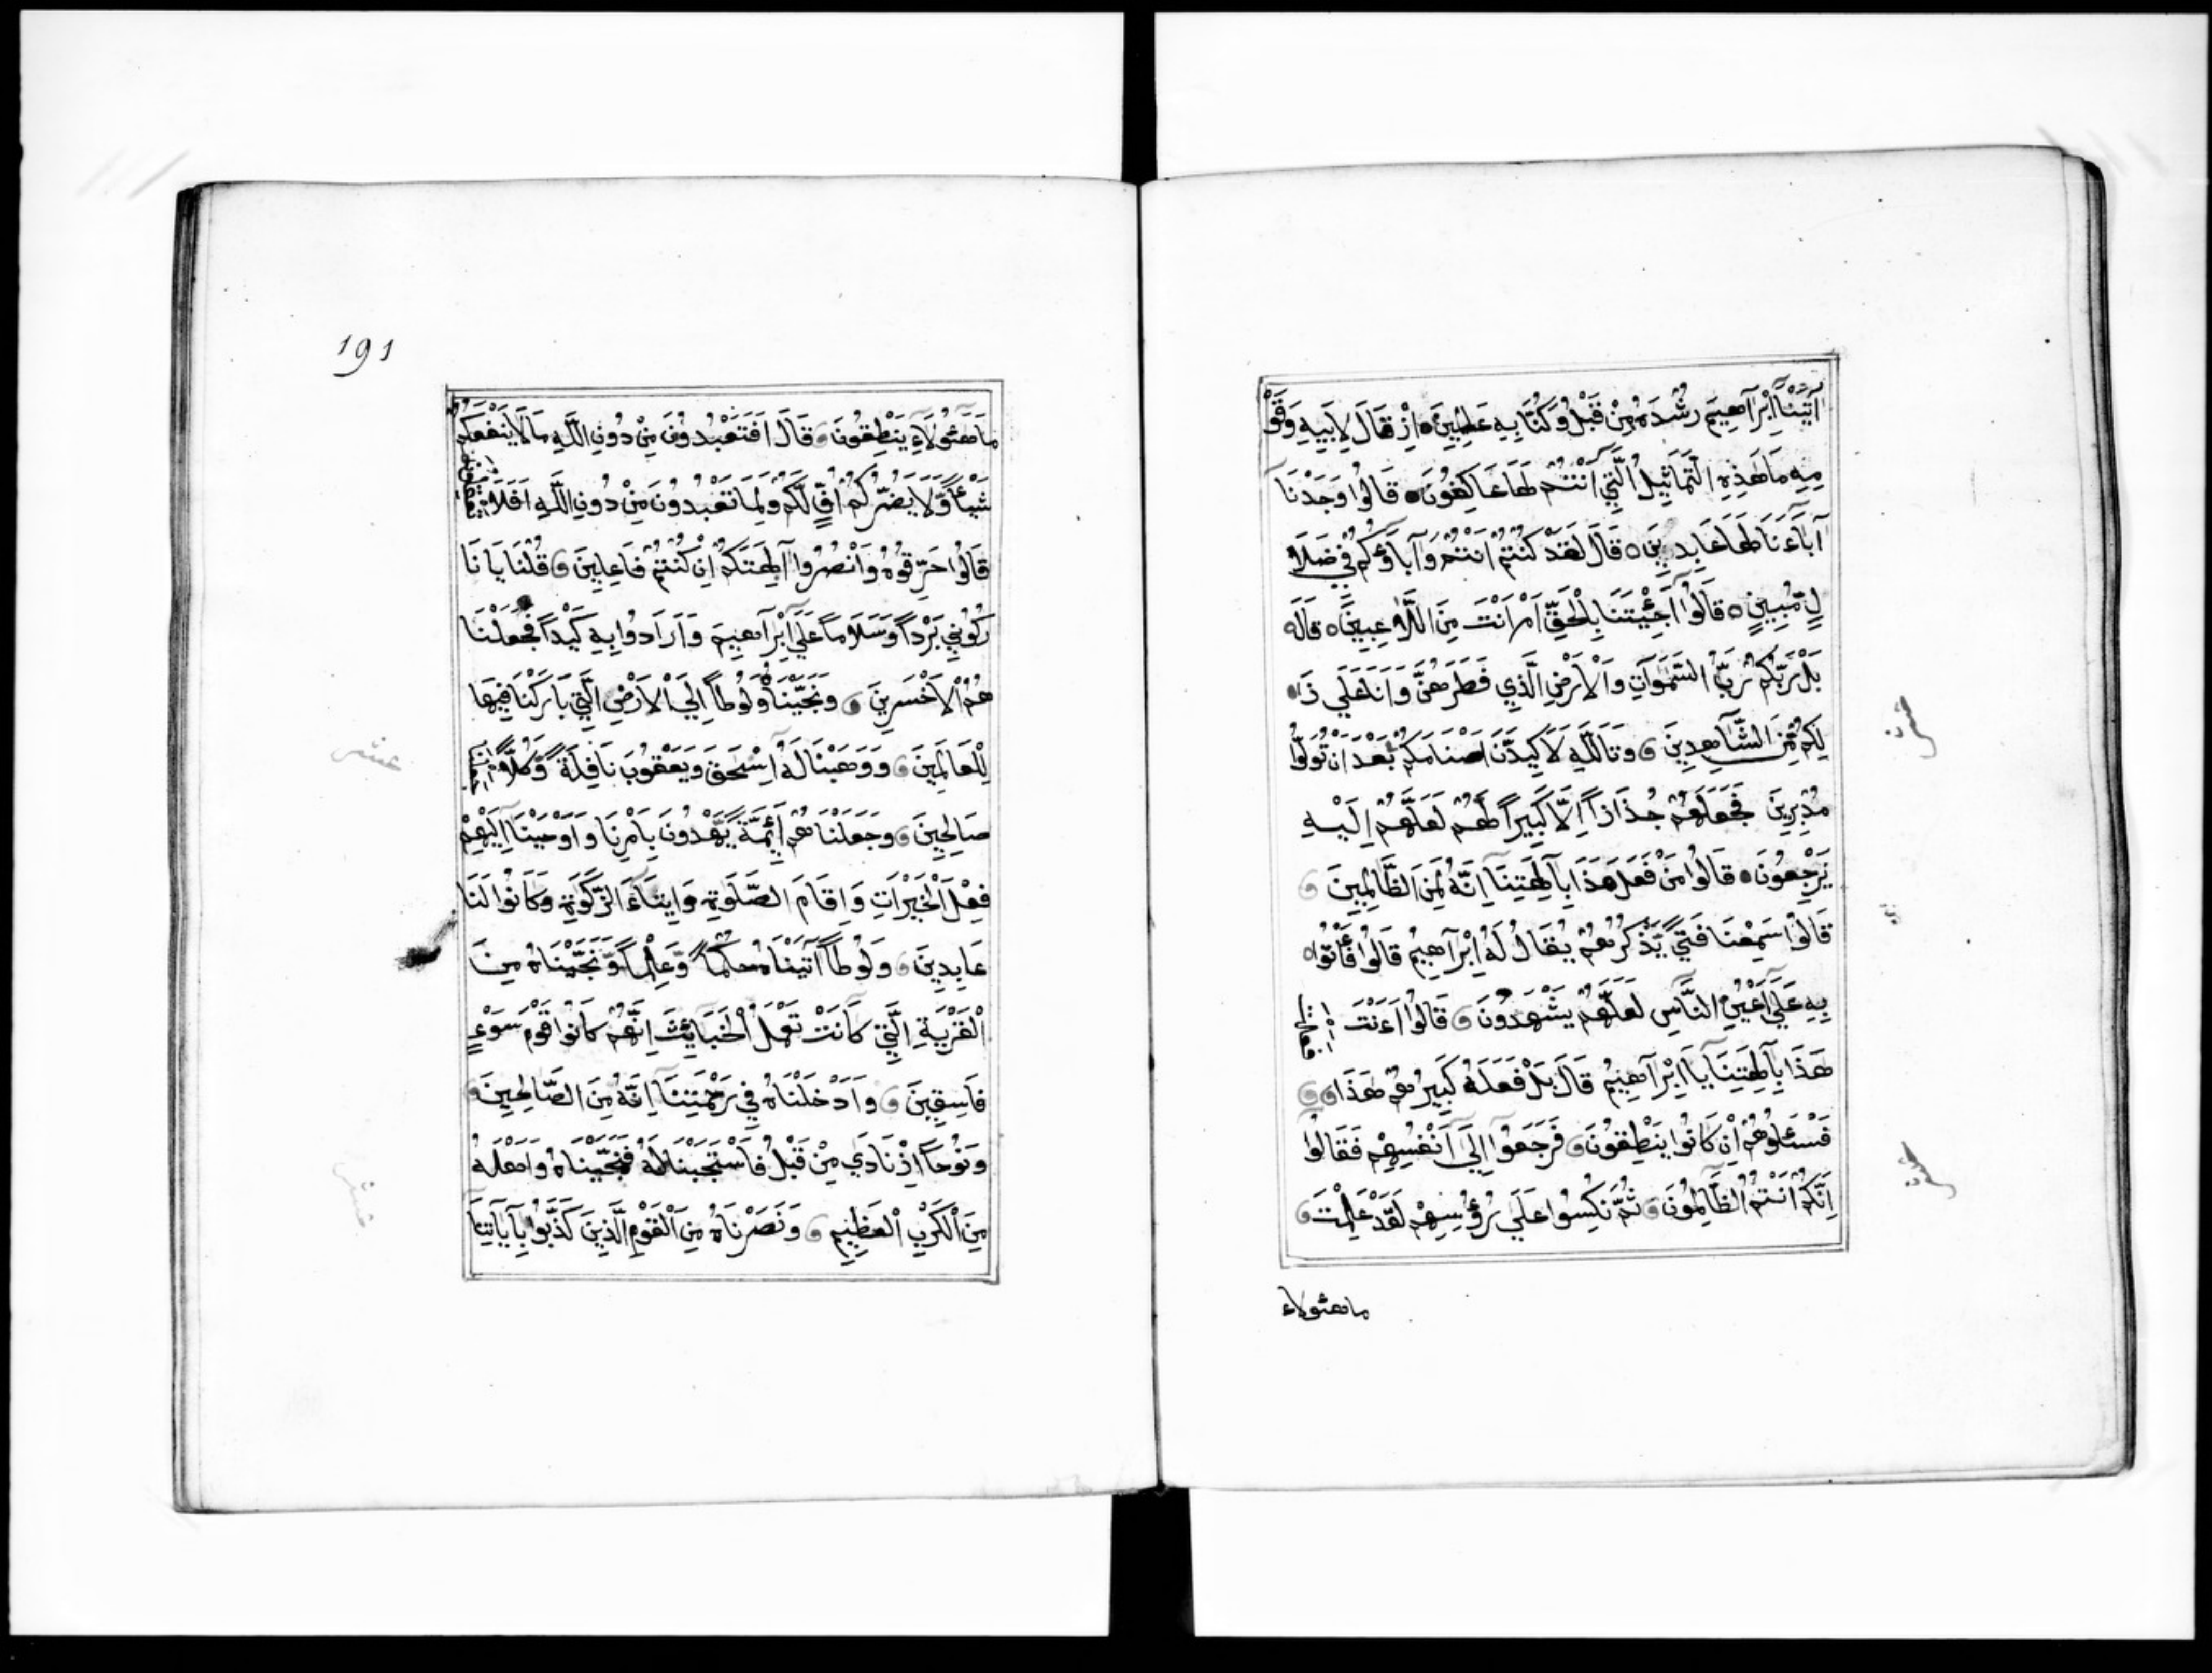 اٰتَيْنَا اِبْرَاهِيمَ رُشْدَهُ مِنْ قَبْلُ وَكُنَّا بِهِ عَالِمِينَ اِذْ قَالَ لِاَبِيهِ وَقَوْ
مِهِ مَا هَذِهِ التَّمَاثِيلُ الَّتِي اَنْتُمْ لَهَا عَاكِفُونَ قَالُوا وَجَدْنَا
آبَاءَنَا لَهَا عَابِدِينَ قَالَ لَقَدْ كُنْتُمْ اَنْتُمْ وَآبَاؤُكُمْ فِي ضَلَا
لٍ مُّبِينٍ قَالُوا اَجِئْتَنَا بِالْحَقِّ اَمْ اَنْتَ مِنَ اللَّاعِبِينَ قَالَ
بَلْ رَّبُّكُمْ رَبُّ السَّمَوَاتِ وَالْاَرْضِ الَّذِي فَطَرَهُنَّ وَاَنَا عَلَى ذَا
لِكُمْ مِّنَ الشَّاهِدِينَ وَتَاللَّهِ لَاَكِيدَنَّ اَصْنَامَكُمْ بَعْدَ اَنْ تُوَلُّوا
مُدْبِرِينَ فَجَعَلَهُمْ جُذَاذاً اِلَّا كَبِيراً لَهُمْ لَعَلَّهُمْ اِلَيْهِ
يَرْجِعُونَ قَالُوا مَنْ فَعَلَ هَذَا بِآلِهَتِنَا اِنَّهُ لَمِنَ الظَّالِمِينَ
قَالُوا سَمِعْنَا فَتًى يَّذْكُرُهُمْ يُقَالُ لَهُ اِبْرَاهِيمُ قَالُوا فَأْتُوا
بِهِ عَلَى اَعْيُنِ النَّاسِ لَعَلَّهُمْ يَشْهَدُونَ قَالُوا اَءَنْتَ
هَذَا بِآلِهَتِنَا يَا اِبْرَاهِيمُ قَالَ بَلْ فَعَلَهُ كَبِيرُهُمْ هَذَا
فَسْئَلُوهُمْ اِنْ كَانُوا يَنْطِقُونَ فَرَجَعُوا اِلَى اَنْفُسِهِمْ فَقَالُوا
اِنَّكُمْ اَنْتُمُ الظَّالِمُونَ ثُمَّ نُكِسُوا عَلَى رُؤُسِهِمْ لَقَدْ عَلِمْتَ
ما هئولاء
191
مَا هَئُولَاءِ يَنْطِقُونَ قَالَ اَفَتَعْبُدُونَ مِنْ دُونِ اللَّهِ مَا لَا يَنْفَعُكُمْ
شَيْئاً وَّلَا يَضُرُّكُمْ اُفٍّ لَّكُمْ وَلِمَا تَعْبُدُونَ مِنْ دُونِ اللَّهِ اَفَلَا
قَالُوا حَرِّقُوهُ وَانْصُرُوا آلِهَتَكُمْ اِنْ كُنْتُمْ فَاعِلِينَ قُلْنَا يَا نَا
رُ كُونِي بَرْداً وَسَلَاماً عَلَى اِبْرَاهِيمَ وَاَرَادُوا بِهِ كَيْداً فَجَعَلْنَا
هُمُ الْاَخْسَرِينَ وَنَجَّيْنَاهُ وَلُوطاً اِلَى الْاَرْضِ الَّتِي بَارَكْنَا فِيهَا
لِلْعَالَمِينَ وَوَهَبْنَا لَهُ اِسْحَقَ وَيَعْقُوبَ نَافِلَةً وَّكُلّاً
صَالِحِينَ وَجَعَلْنَاهُمْ اَئِمَّةً يَّهْدُونَ بِاَمْرِنَا وَاَوْحَيْنَا اِلَيْهِمْ
فِعْلَ الْخَيْرَاتِ وَاِقَامَ الصَّلَوةِ وَاِيتَاءَ الزَّكَوةِ وَكَانُوا لَنَا
عَابِدِينَ وَلُوطاً آتَيْنَاهُ حُكْماً وَّعِلْماً وَّنَجَّيْنَاهُ مِنَ
الْقَرْيَةِ الَّتِي كَانَتْ تَعْمَلُ الْخَبَائِثَ اِنَّهُمْ كَانُوا قَوْمَ سَوْءٍ
فَاسِقِينَ وَاَدْخَلْنَاهُ فِي رَحْمَتِنَا اِنَّهُ مِنَ الصَّالِحِينَ
وَنُوحاً اِذْ نَادَى مِنْ قَبْلُ فَاسْتَجَبْنَا لَهُ فَنَجَّيْنَاهُ وَاَهْلَهُ
مِنَ الْكَرْبِ الْعَظِيمِ وَنَصَرْنَاهُ مِنَ الْقَوْمِ الَّذِينَ كَذَّبُوا بِآيَاتِنَا
عشر